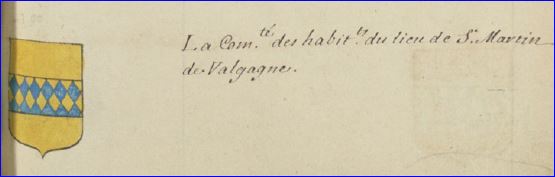 La Com.té des habit.ts du lieu de St. Martin
de Valgagne.